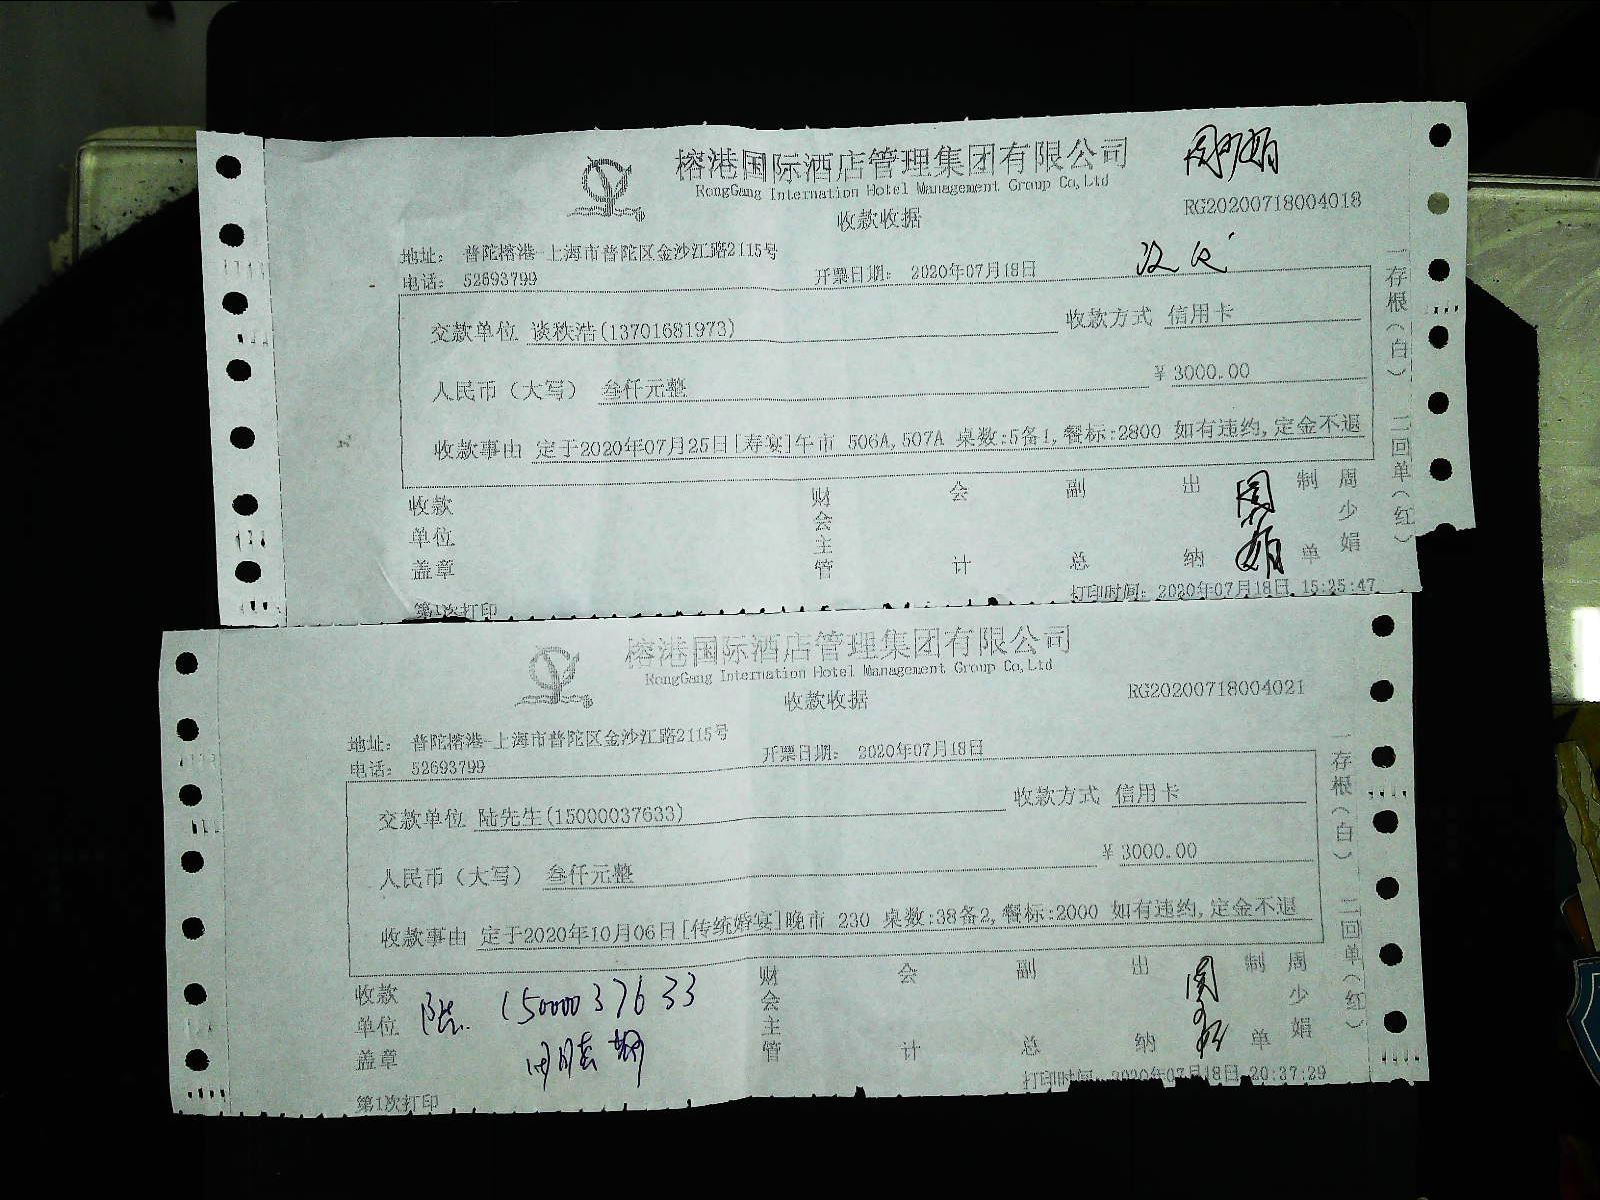 榕港国际酒店管理集团有限公司
RongGang Internation Hotel Management Group Co,Ltd
收款收据
RG20200718004018
地址： 普陀榕港-上海市普陀区金沙江路2115号
电话： 52693799
开票日期： 2020年07月18日
交款单位 谈秩浩(13701681973)
收款方式 信用卡
人民币（大写） 叁仟元整
¥ 3000.00
收款事由 定于2020年07月25日[寿宴]午市 506A,507A 桌数:5备1,餐标:2800 如有违约,定金不退
收款单位盖章
财会主管
会计
副总
出纳
制单
周少娟
一存根（白） 二回单（红）
第1次打印
打印时间： 2020年07月18日 15:25:47
榕港国际酒店管理集团有限公司
RongGang Internation Hotel Management Group Co,Ltd
收款收据
RG20200718004021
地址： 普陀榕港-上海市普陀区金沙江路2115号
电话： 52693799
开票日期： 2020年07月18日
交款单位 陆先生(15000037633)
收款方式 信用卡
人民币（大写） 叁仟元整
¥ 3000.00
收款事由 定于2020年10月06日[传统婚宴]晚市 230 桌数:38备2,餐标:2000 如有违约,定金不退
收款单位盖章
陆 15000037633
财会主管
会计
副总
出纳
制单
周少娟
一存根（白） 二回单（红）
第1次打印
打印时间： 2020年07月18日 20:37:29